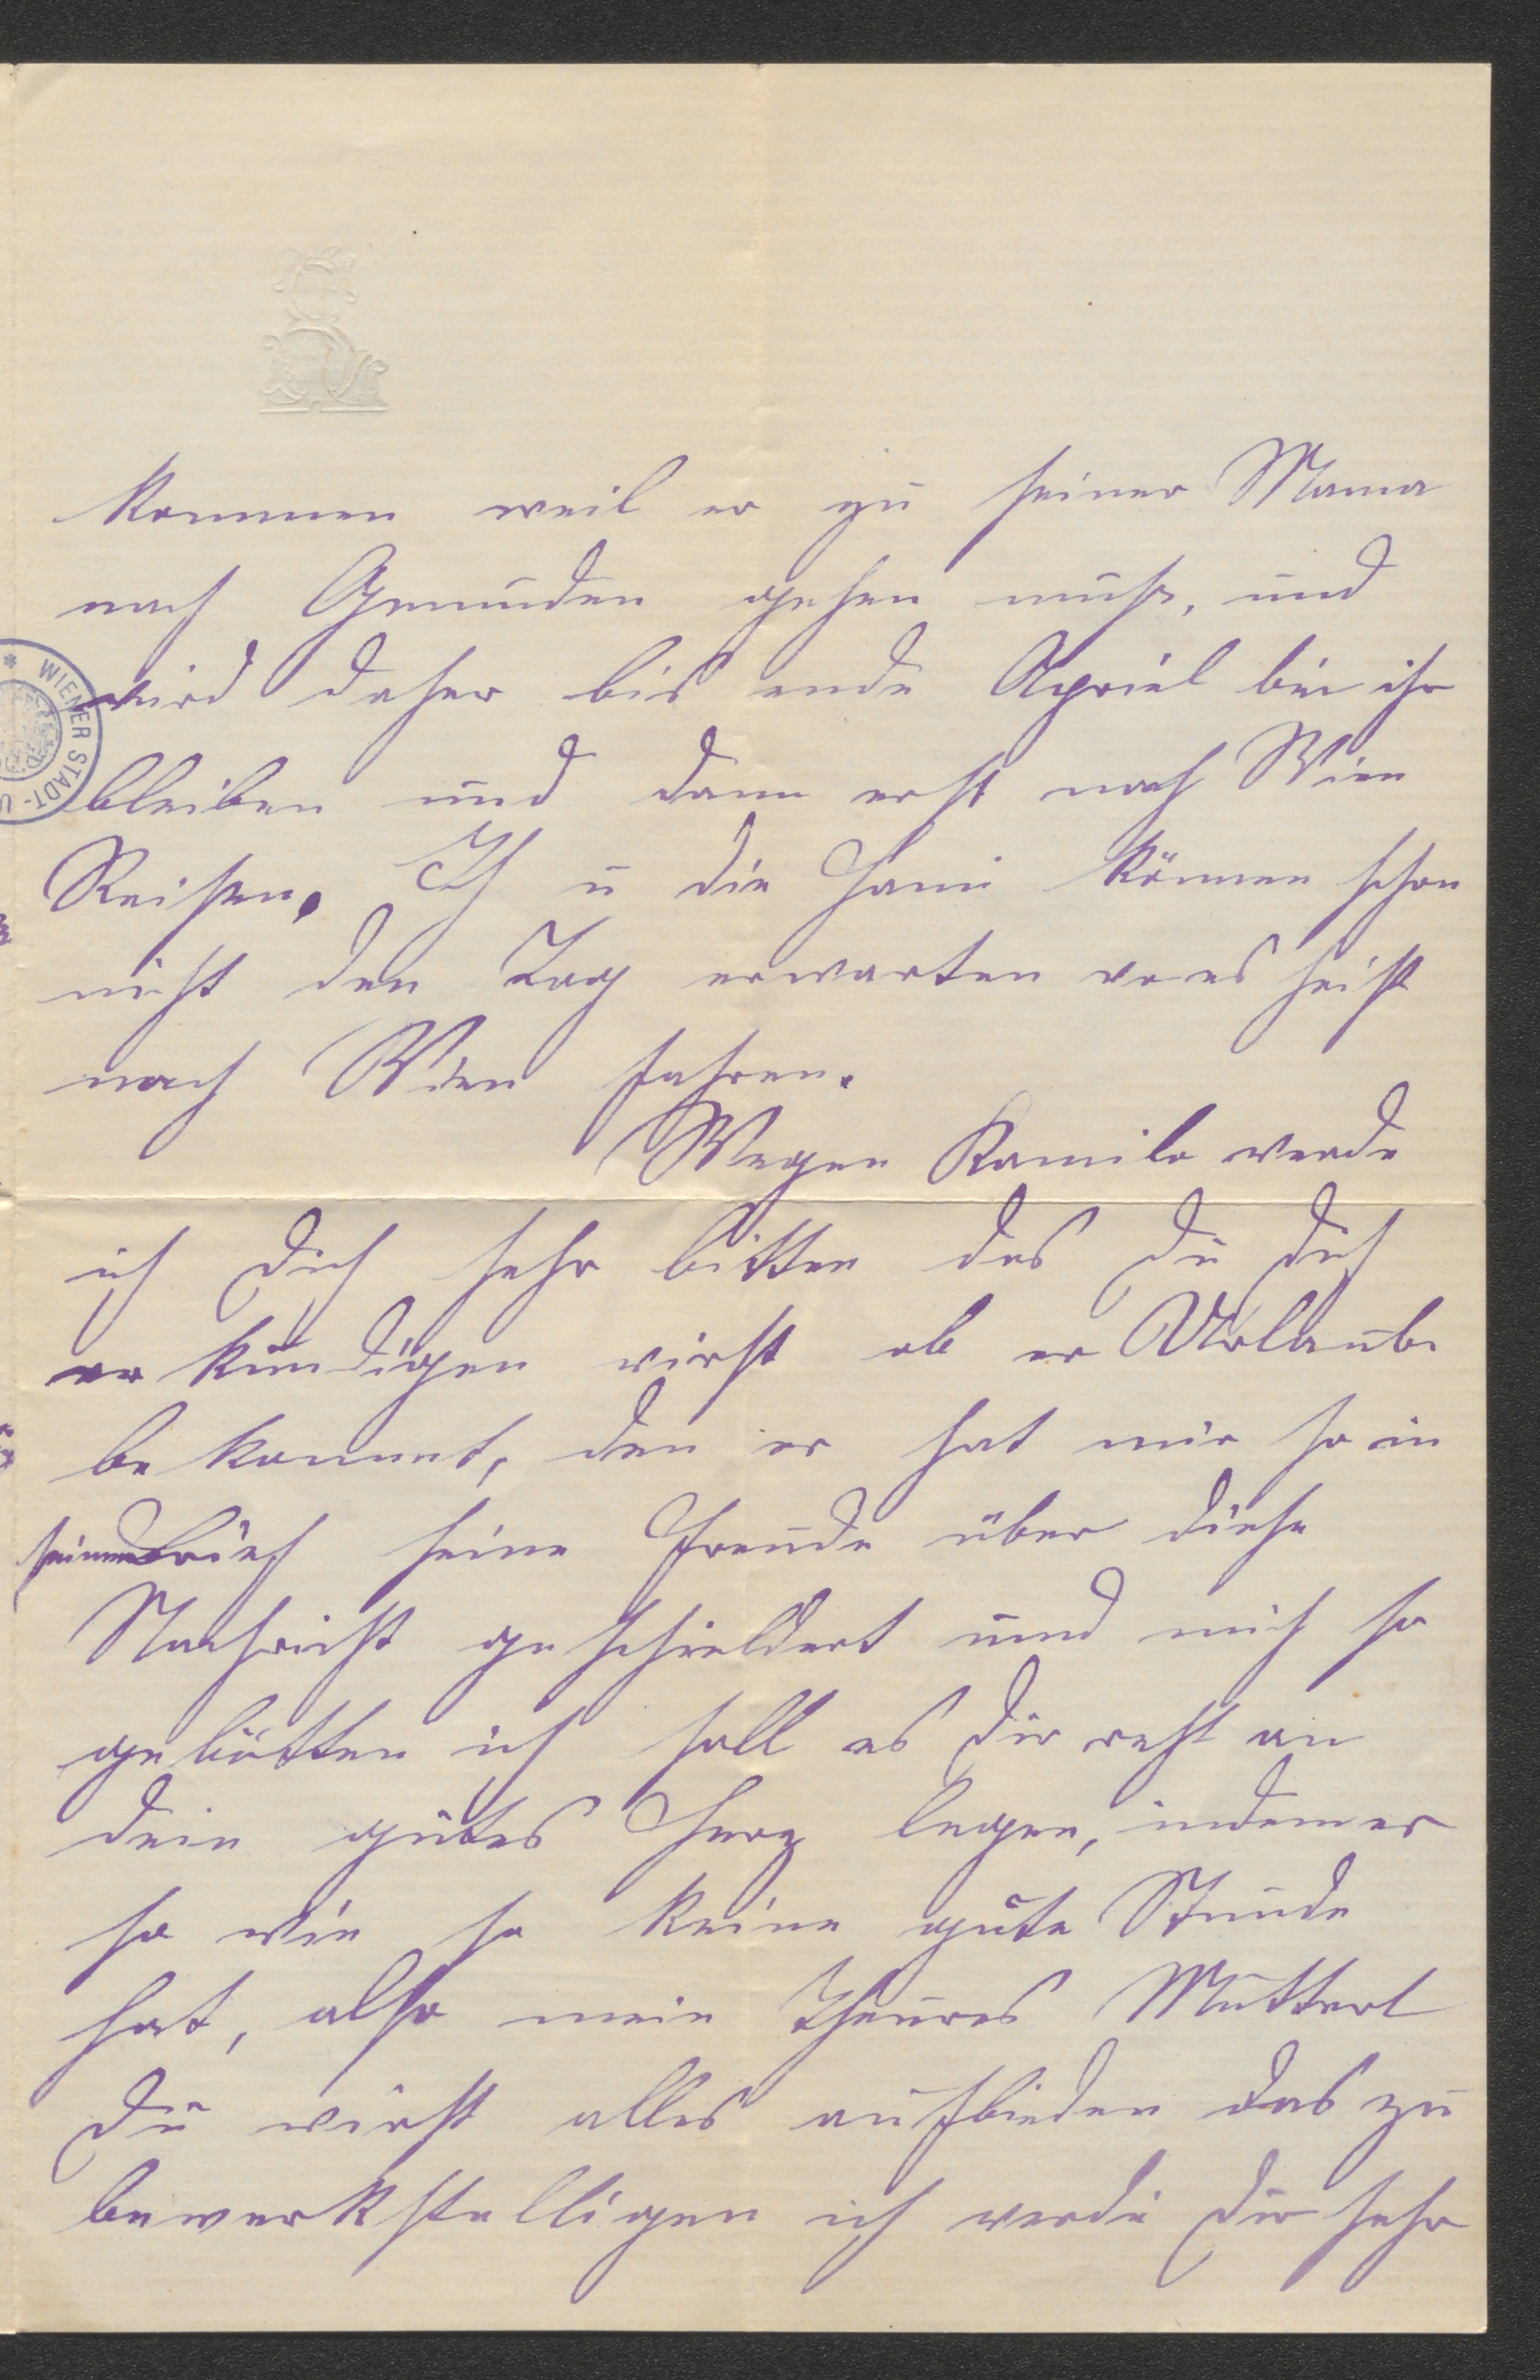 kommen weil er zu seiner Mama
nach Gmunden gehen muß, und
wird daher bis ende Apriel bei ihr
bleiben und dann erst nach Wien
Reisen. Ich u die Hani können schon
nicht den Tag erwarten wo es heist
nach Wien fahren.
Wegen Kamilo werde
ich Dich sehr bitten das Du dich
erkundigen wirst ob er Urlaub
bekommt, den er hat mir so in
seinem Brief seine Freude über diese
Nachricht geschieldert und mich so
gebötten ich soll es Dir recht an
dein gutes Herz legen, indem er
so wie so keine gute Stunde
hat, also mein Theures Mutterl
Du wirst alles aufbieden das zu
bewerkstelligen ich werde Dir sehr
WIENER STADT-U